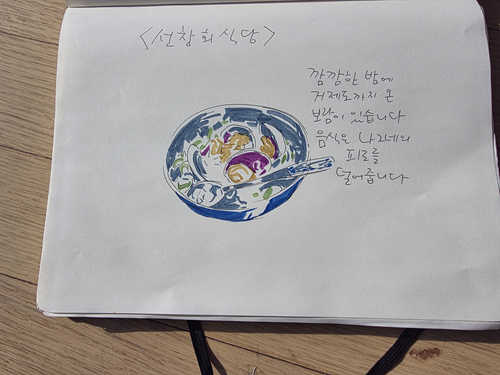 <선창회식당>
깜깜한 밤에
거제도까지 온
보람이 있습니다
음식은 나그네의
피로를
덜어줍니다